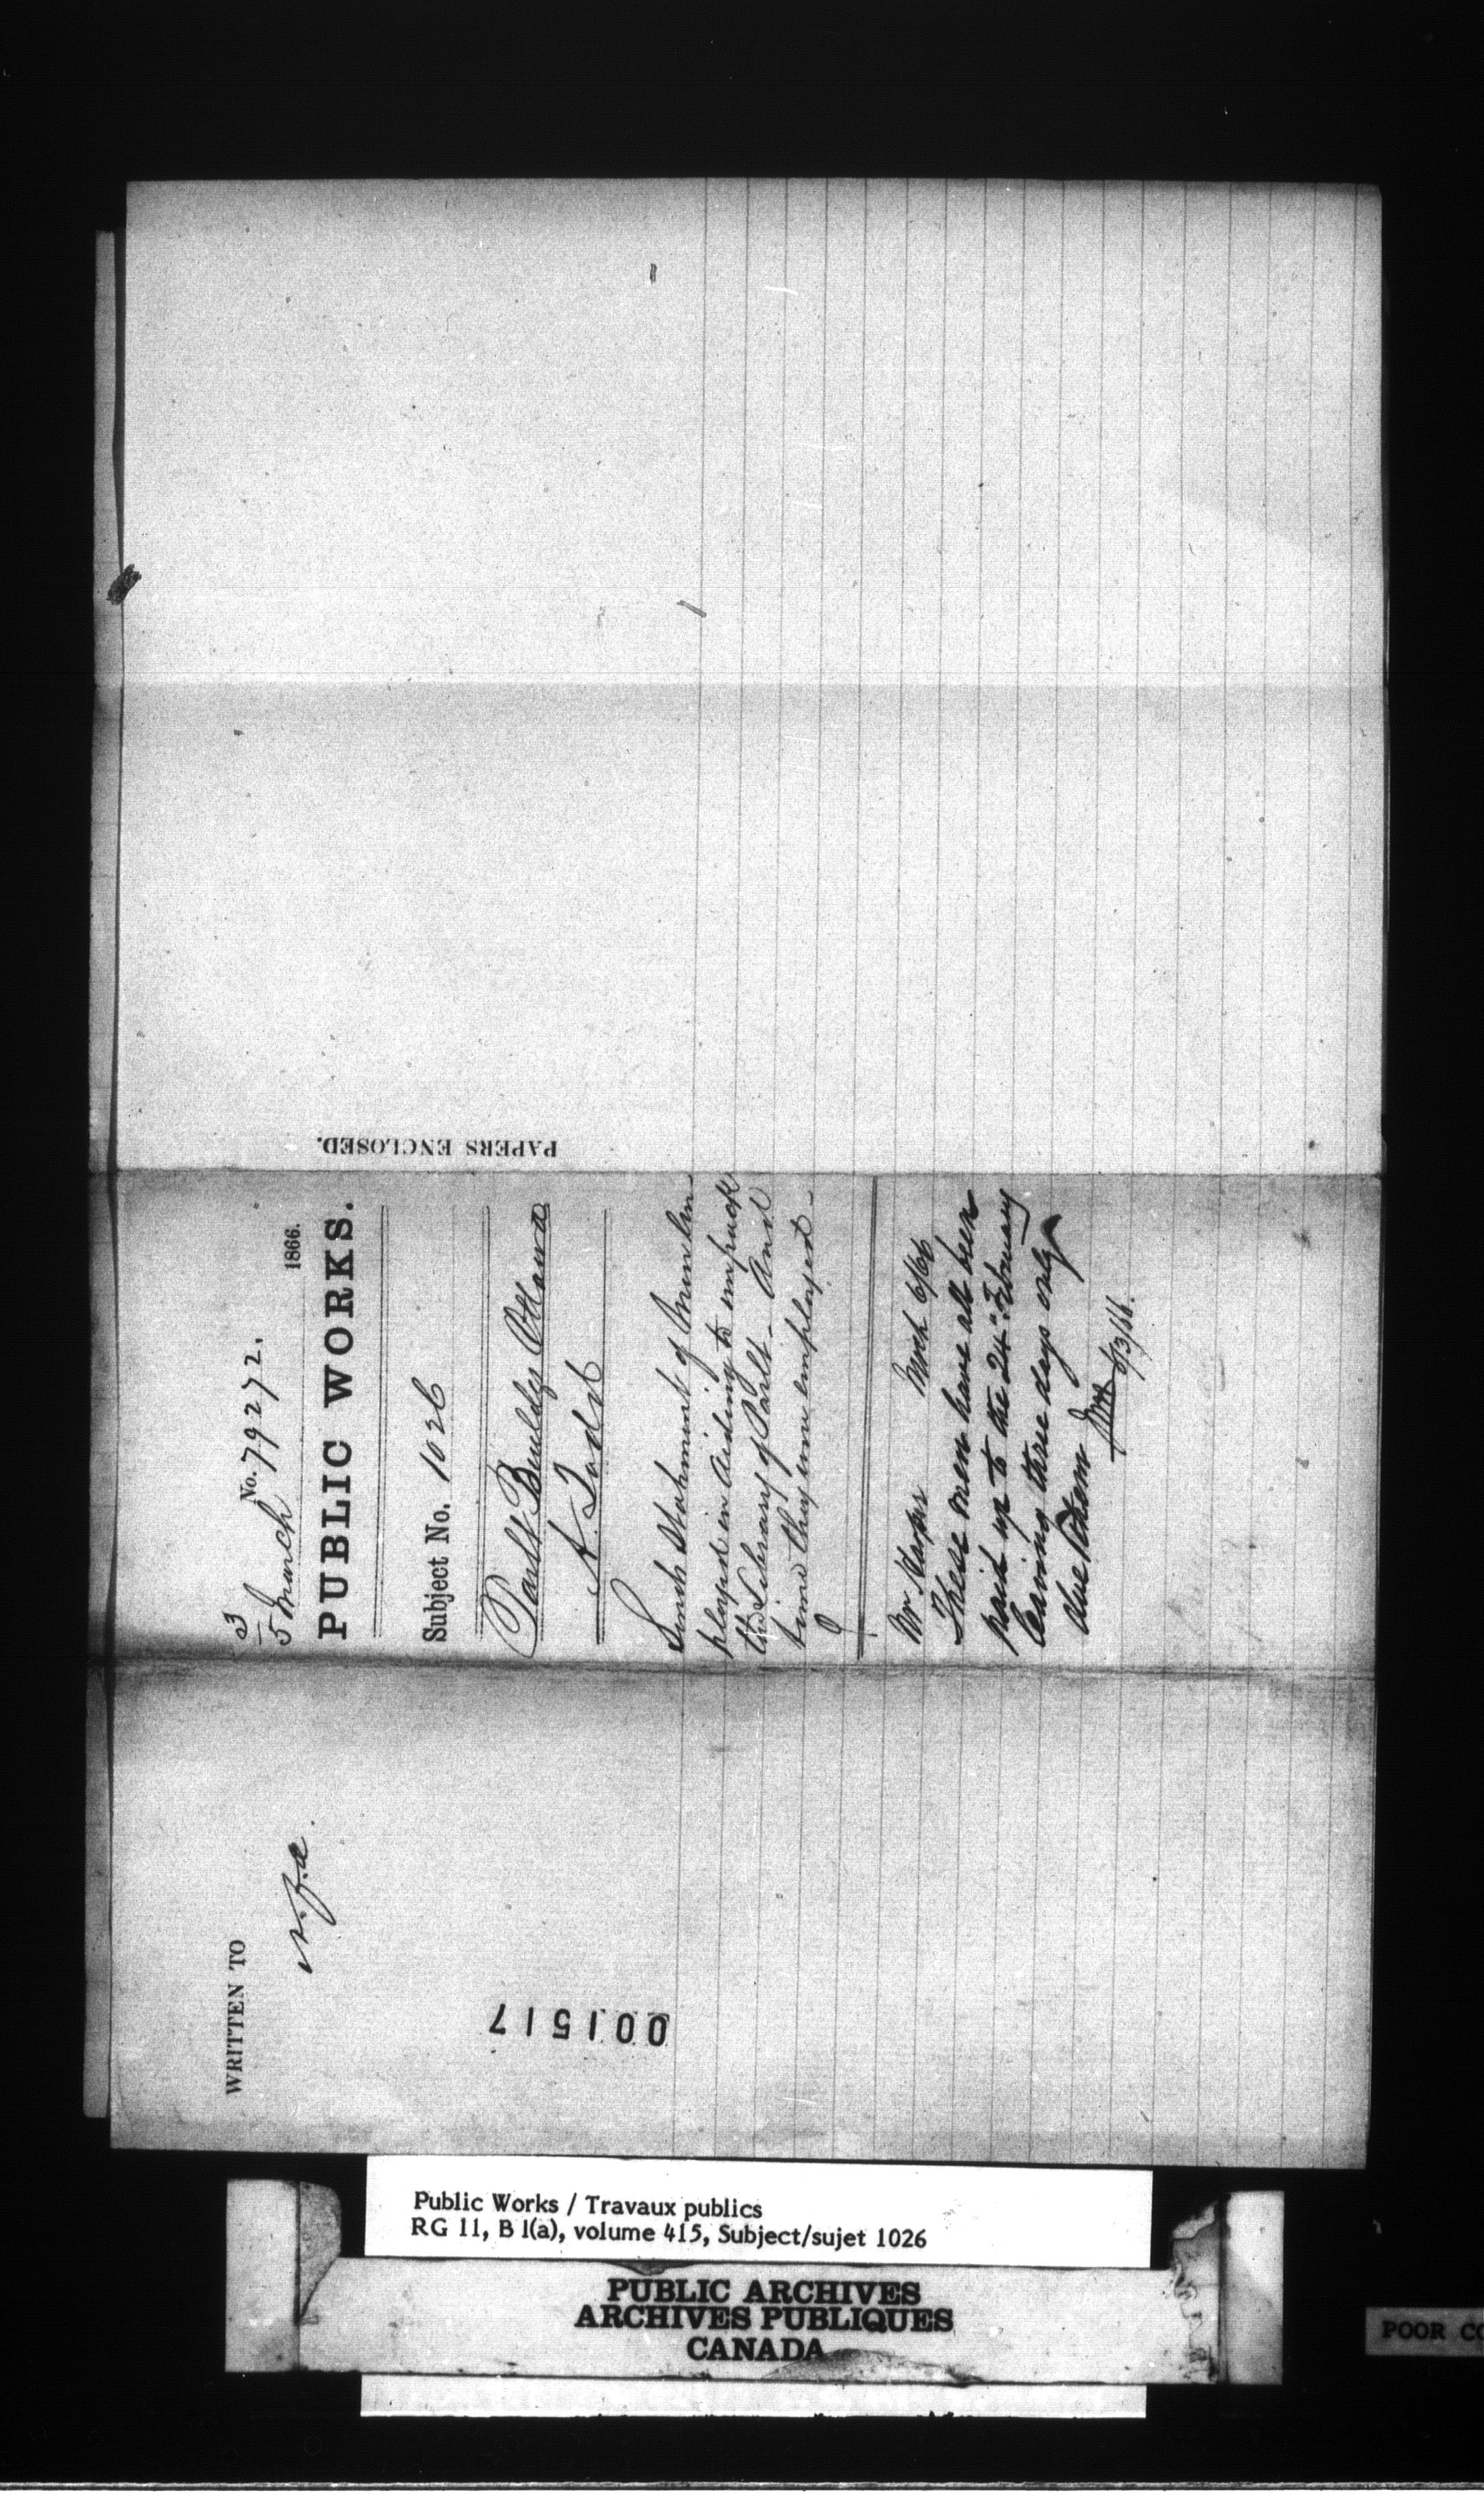 WRITTEN TO
n.f.a.
001517
No. 79272.
3/5 March 1866.
PUBLIC WORKS.
Subject No. 1026
Parlt Buildgs Ottawa
A. Todd
Sends Statement of Men em-
ployed in Aiding to unpack
the Library of Parlt - And
time they were employed -
Mr Harper March 6/66
These men have all been
paid up to the 24th February
leaving three days only
due them
6/3/66.
PAPERS ENCLOSED.
Public Works / Travaux publics
RG 11, B 1(a), volume 415, Subject/sujet 1026
PUBLIC ARCHIVES
ARCHIVES PUBLIQUES
CANADA
POOR CO